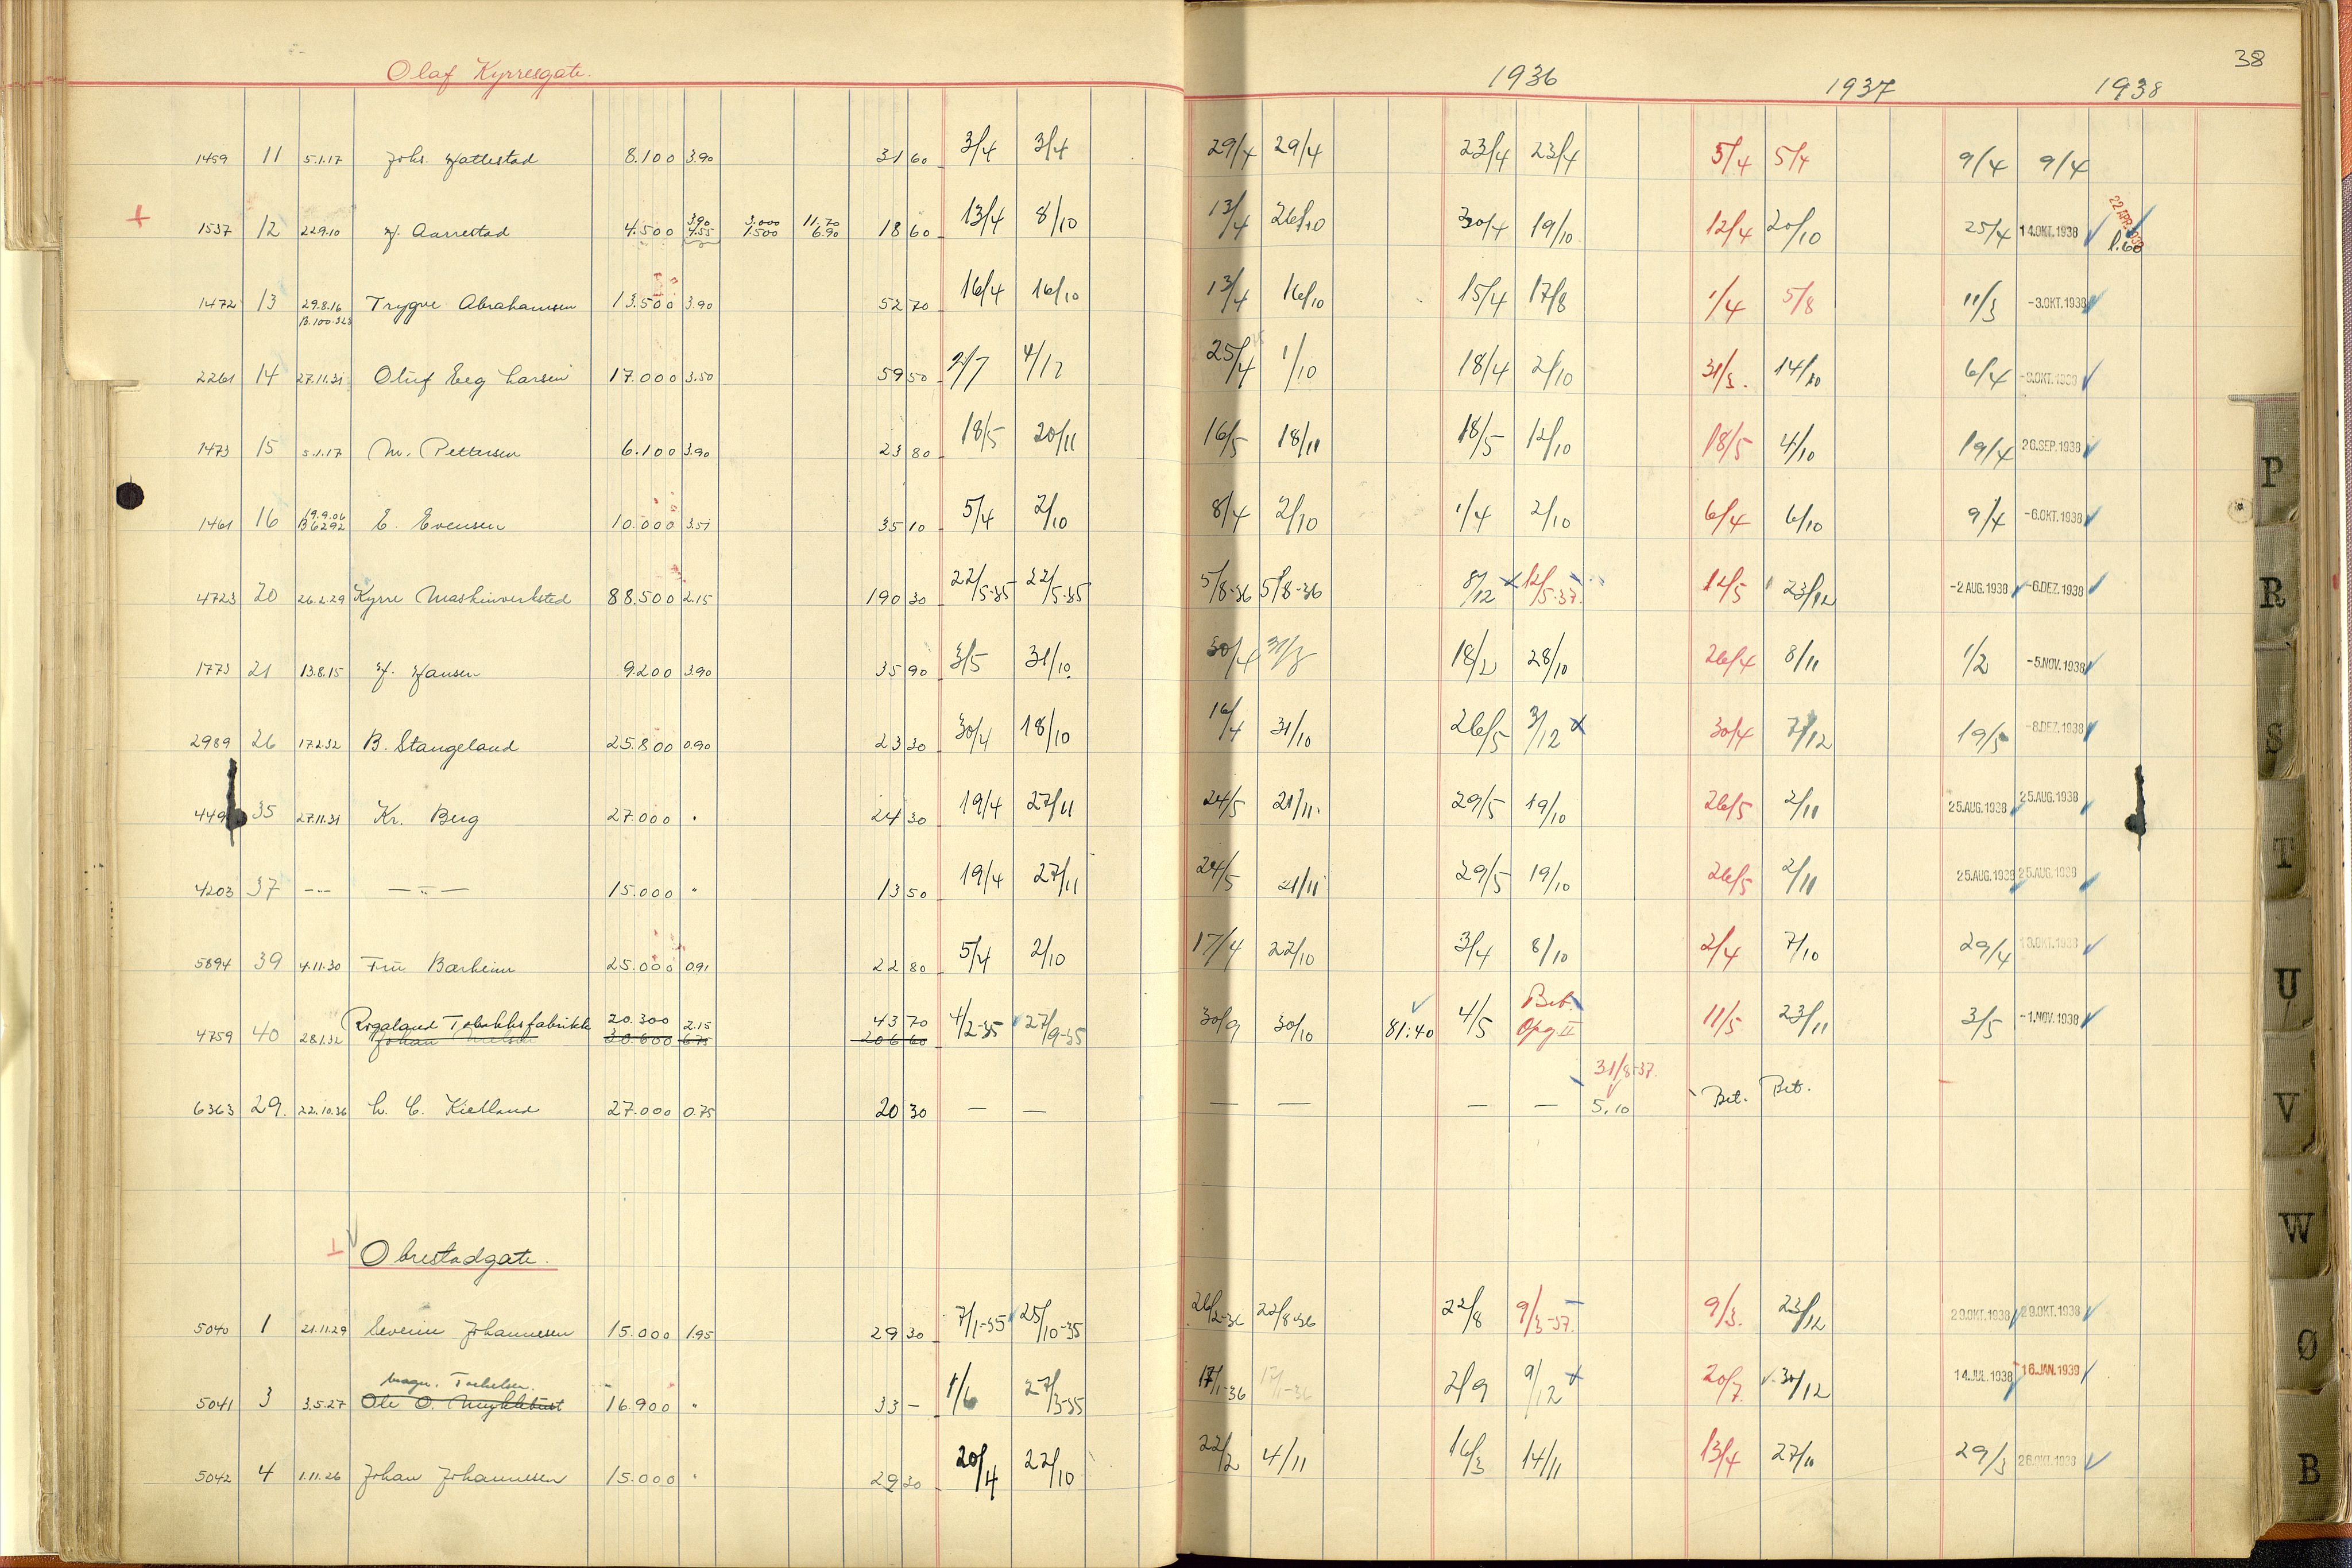 Olaf Kyrresgate.
38
1936 1937 1938
1459 11 5.1.17 Johs. Hattestad 8.100 3.90 31 60 3/4 3/4 29/4 29/4 23/4 23/4 5/4 5/4 9/4 9/4
1537 12 22.9.10 H. Aarrestad 4.500 3.90 4.55 3.000 1.500 11.70 6.90 18 60 13/4 8/10 13/4 26/10 30/4 19/10 12/4 20/10 25/4 14.OKT.1938 1.60
1472 13 29.8.16 B.100.323 Trygve Abrahamsen 13.500 3.90 52 70 16/4 16/10 13/4 16/10 15/4 17/8 1/4 5/8 11/3 -3.OKT.1938
2261 14 27.11.31 Oluf Eeg Larsen 17.000 3.50 59 50 2/7 4/12 25/4 1/10 18/4 2/10 31/3. 14/10 6/4 -3.OKT.1938
1473 15 5.1.17 M. Pettersen 6.100 3.90 23 80 18/5 20/11 16/5 18/11 18/5 12/10 18/5 4/10 19/4 26.SEP.1938
1461 16 19.9.06 B 6292 E. Evensen 10.000 3.51 35 10 5/4 2/10 8/4 2/10 1/4 2/10 6/4 6/10 9/4 -6.OKT.1938
4723 20 26.2.29 Kyrre Maskinverksted 88.500 2.15 190 30 22/5-35 22/5-35 5/8-36 5/8-36 8/12 12/5-37. 12/5 23/12 -2 AUG.1938 -6.DEZ.1938
1773 21 13.8.15 H. Hansen 9.200 3.90 35 90 3/5 31/10. 30/4 31/8 18/2 28/10 26/4 8/11 1/2 -5.NOV.1938
2989 26 17.2.32 B. Stangeland 25.800 0.90 23 30 30/4 18/10 16/4 31/10 26/5 3/12 30/4 7/12 19/5 -8.DEZ.1938
449 35 27.11.31 Kr. Berg 27.000 " 24 30 19/4 27/11 24/5 21/11. 29/5 19/10 26/5 2/11 25.AUG.1938 25.AUG.1938
4203 37 --- — " — 15.000 " 13 50 19/4 27/11 24/5 21/11 29/5 19/10 26/5 2/11 25.AUG.1938 25.AUG.1938
5894 39 4.11.30 Fru Barheim 25.000 0.91 22 80 5/4 2/10 17/4 22/10 3/4 8/10 2/4 7/10 29/4 13.OKT.1938
Rogaland Tobakksfabrikk 20.300 2.15 43 70 4/2-35 27/9-35 Bet.
4759 40 28.1.32 Johan 30.600 6.75 206 60 30/9 30/10 81.40 4/5 Opg. II 11/5 23/11 3/5 -1.NOV.1938
31/8-37.
6363 29. 22.10.36 L. C. Kielland 27.000 0.75 20 30 — — — — — — 5.10 Bet. Bet.
Obrestadgate.
5040 1 21.11.29 Severin Johannesen 15.000 1.95 29 30 7/1-35 25/10-35 26/2-36 22/8-36 22/8 9/3-37. 9/3. 23/12 29.OKT.1938 29.OKT.1938
Magn. Torkelsen
5041 3 3.5.27 Ole O. Myklebust 16.900 " 33 – 1/6 27/3-35 17/1-36 17/1-36 2/9 9/12 20/7. 30/12 14.JUL.1938 16.JAN.1939
5042 4 1.11.26 Johan Johannesen 15.000 " 29 30 20/4 22/10 22/2 4/11 16/3 14/11 13/4 27/11 29/3 28.OKT.1938
P
R
S
T
U
V
W
Ø
B